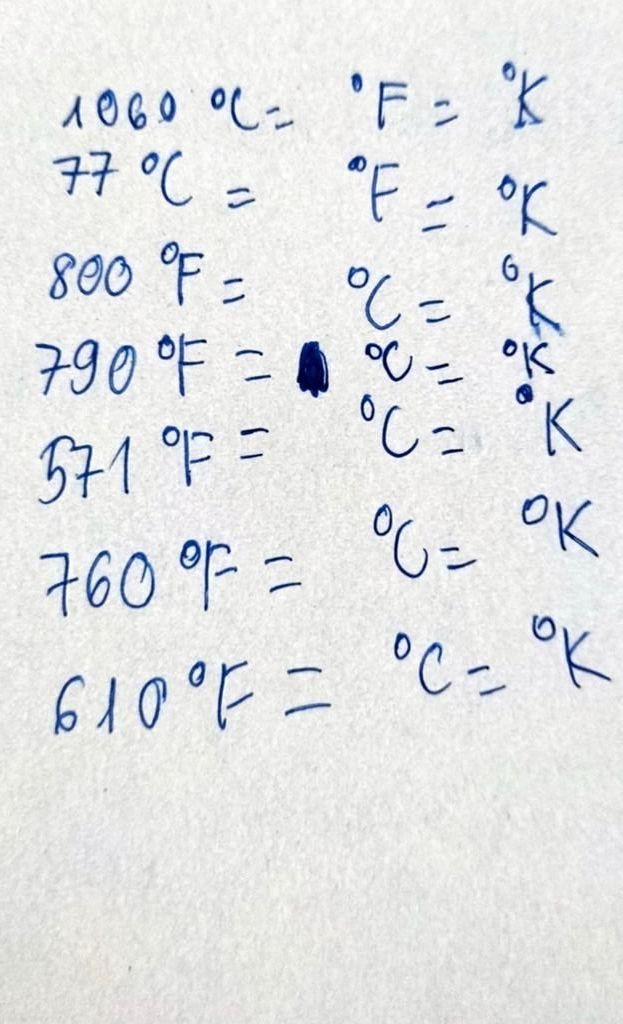 1060 °C = °F = °K
77 °C = °F = °K
800 °F = °C = °K
790 °F = °C = °K
571 °F = °C = °K
760 °F = °C = °K
610 °F = °C = °K